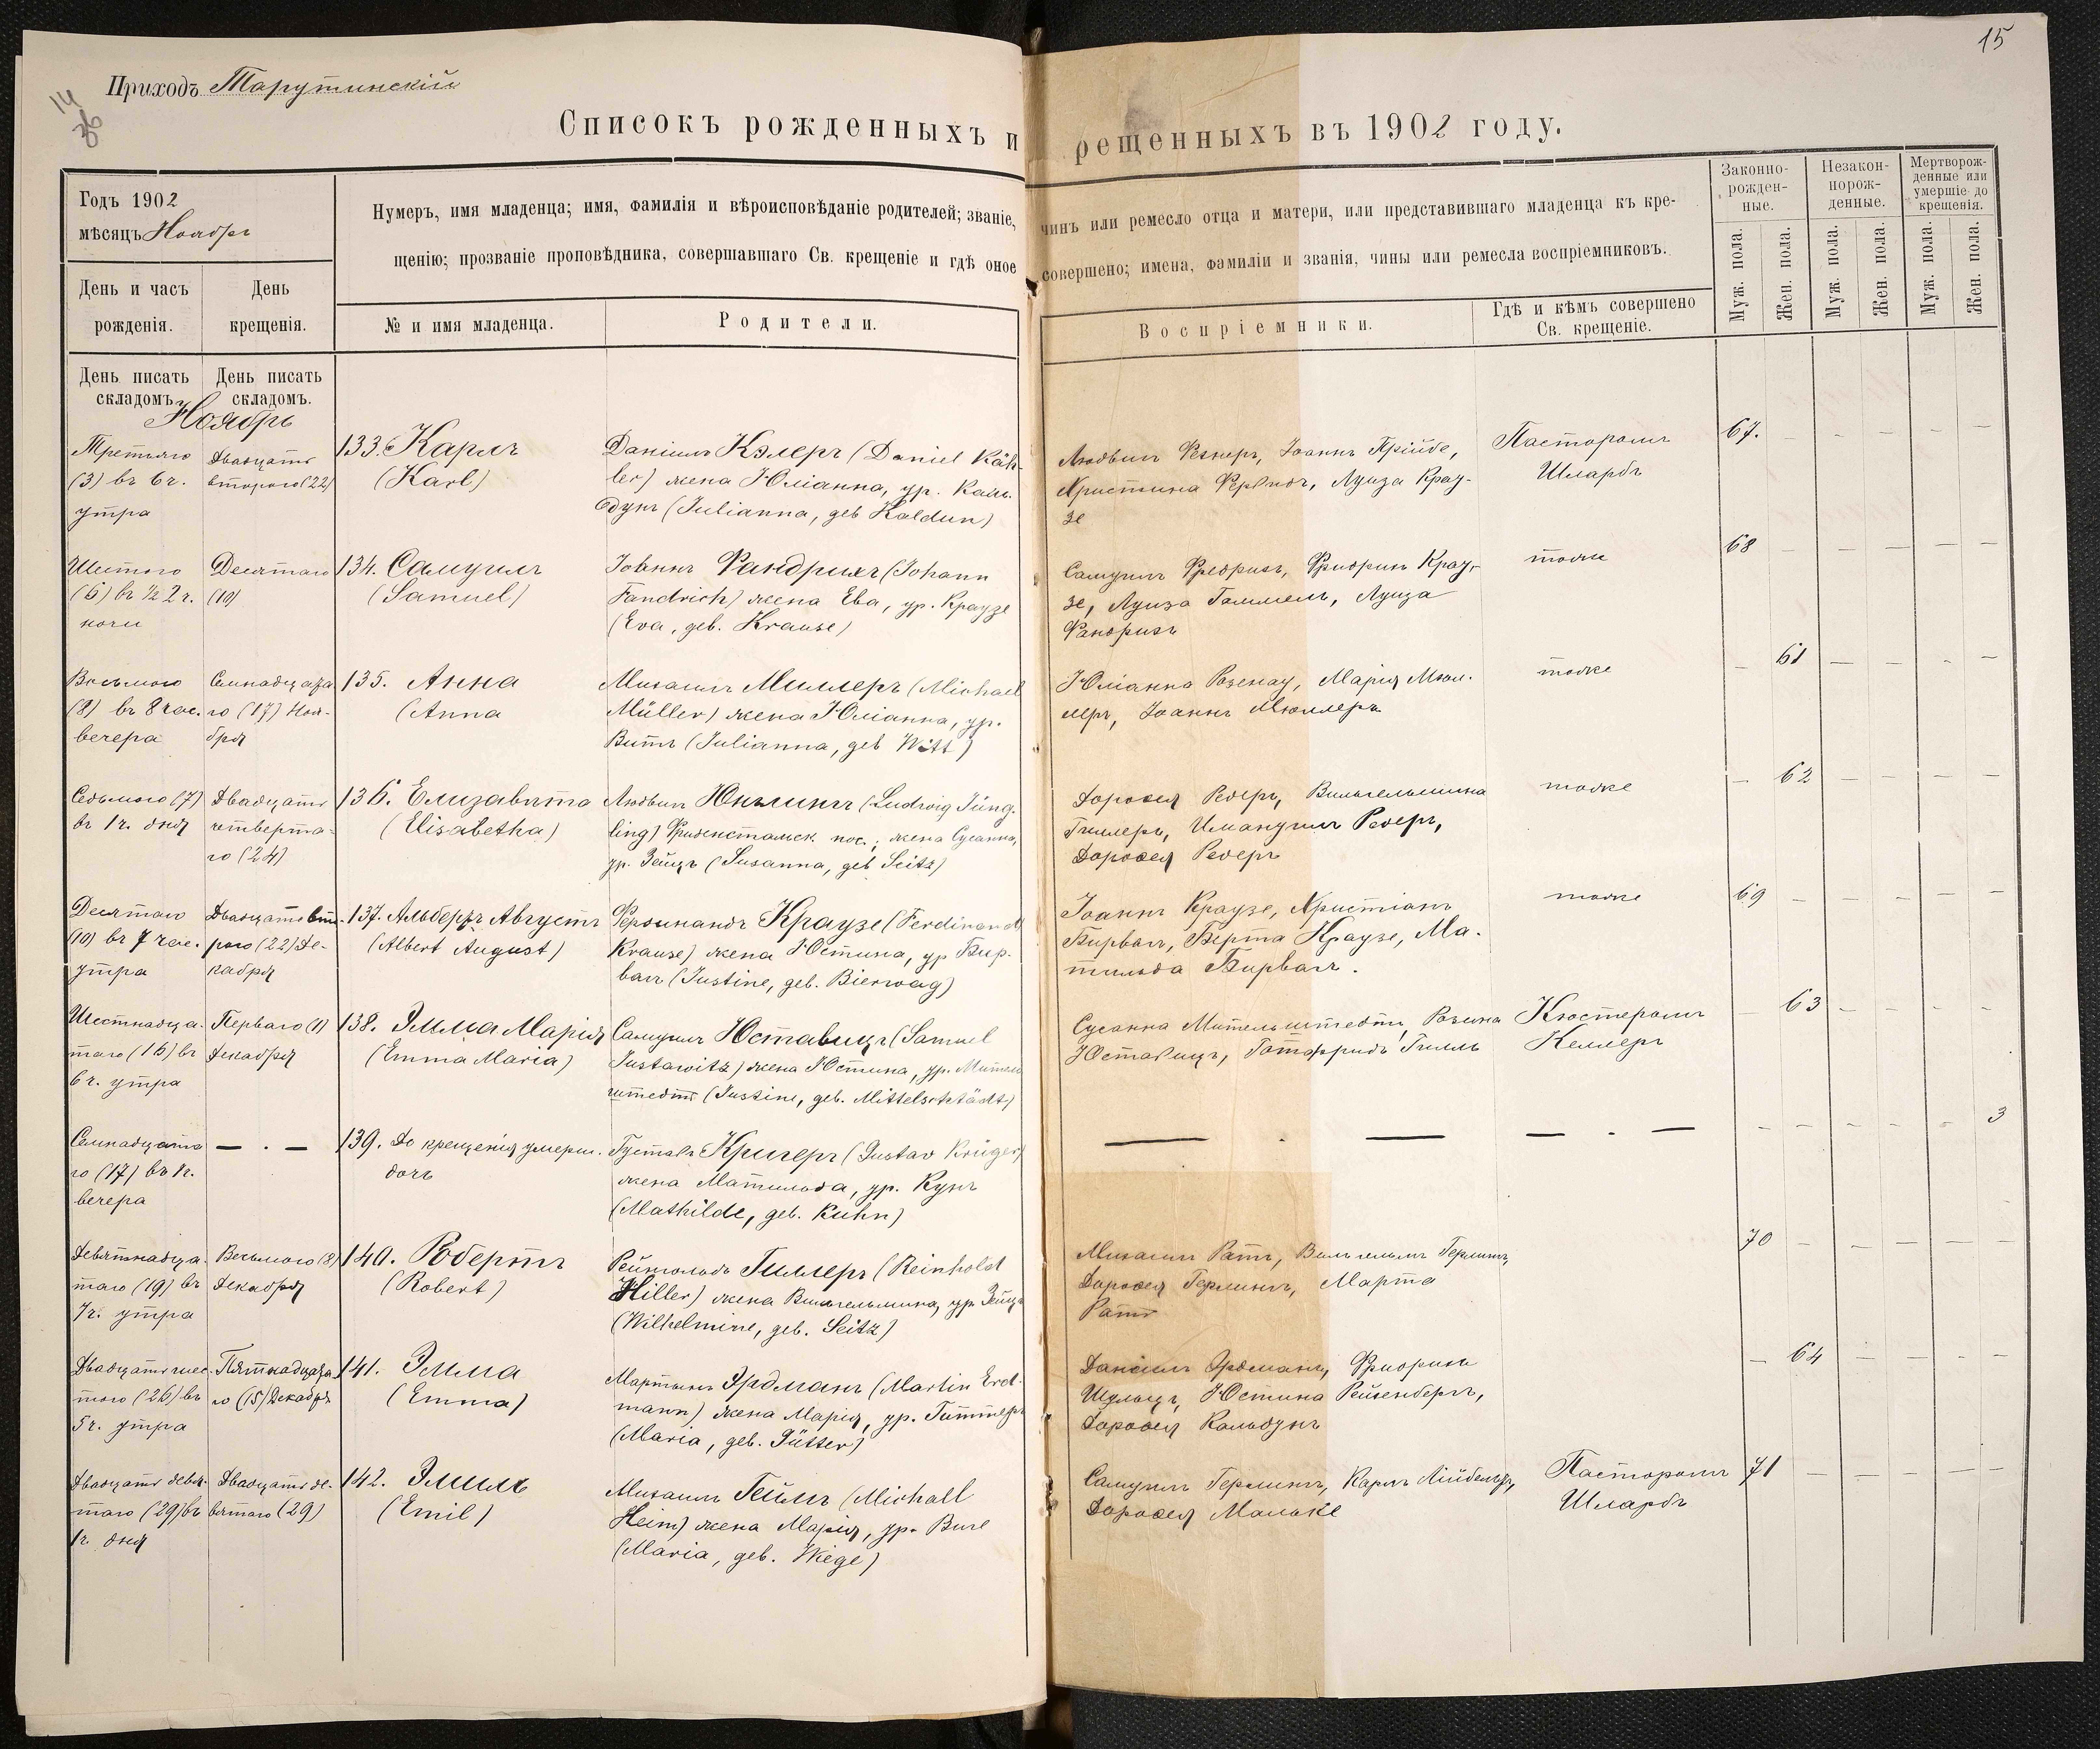 15
14
36
Приходъ Тарутинскій
Списокъ рожденныхъ и рещенныхъ въ 1902 году.
Годъ 1902
мѣсяцъ Ноябрь
Нумеръ, имя младенца; имя, фамилія и вѣроисповѣданіе родителей; званіе, чинъ или ремесло отца и матери, или представившаго младенца къ кре-
щенію; прозваніе проповѣдника, совершавшаго Св. крещеніе и гдѣ оное совершено; имена, фамиліи и званія, чины или ремесла воспріемниковъ.
Законно-
рожден-
ные.
Незакон-
норож-
денные.
Мертворож-
денные или
умершіе до
крещенія.
День и часъ
рожденія.
День
крещенія.
№ и имя младенца.
Родители.
Воспріемники.
Гдѣ и кѣмъ совершено
Св. крещеніе.
Муж. пола.
Жен. пола.
Муж. пола.
Жен. пола.
Муж. пола.
Жен. пола.
День писать
складомъ.
День писать
складомъ.
Ноябрь
Третьяго
(3) въ 6 ч.
утра
Двадцать
второго (22)
133. Карлъ
(Karl)
Даніилъ Кэлеръ (Daniel Käh-
ler) жена Юліанна, ур. Каль-
дунъ (Julianna, geb Kaldun)
Людвигъ Фезнеръ, Іоаннъ Прійбе,
Христина, Луиза Крау-
зе
Пасторомъ
Шлардъ
67. - - - - -
Шестого
(6) въ ½ 2 ч.
ночи
Десятаго
(10)
134. Самуилъ
(Samuel)
Іоаннъ Фандрихъ (Johann
Fandrich) жена Ева, ур. Краузе
(Eva, geb. Krause)
Самуилъ Фредрихъ, Фридрихъ Крау-
зе, Луиза Гаммель, Луиза
Фандрихъ
тоже
68 - - - - -
Восьмого
(8) въ 8 час.
вечера
Семнадцата
го (17) Ноя-
бря
135. Анна
(Anna
Михаилъ Миллеръ (Michael
Müller) жена Юліанна, ур.
Витъ (Julianna, geb Witt)
Юліанна Розенау, Марія Мюл-
леръ, Іоаннъ Мюллеръ
тоже
- 61 - - - -
Седьмого (7)
въ 1 ч. дня
Двадцать
четверта-
го (24)
136. Елизавѣта
(Elisabetha)
Людвигъ Юнглингъ (Ludwig Jüng-
ling) Фриденстальск. пос.; жена Сусанна,
ур. Зейцъ (Susanna, geb Seitz)
Доровея Редеръ, Вильгельмина
Гиллеръ, Имануилъ Редеръ,
Доровея Редеръ
тоже
- 62 - - - -
Десятаго
(10) въ 7 час.
утра
Двадцать вто-
рого (22) Де-
кабря
137. Альбертъ Августъ
(Albert August)
Фердинандъ Краузе (Ferdinand
Krause) жена Юстина, ур Бир-
вагъ (Justine, geb. Bierwag)
Іоаннъ Краузе, Христіанъ
Бирвагъ, Берта Краузе, Ма-
тильда Бирвагъ.
тоже
69 - - - - -
Шестнадца-
таго (16) въ
6 ч. утра
Перваго (1)
Декабря
138. Эмма Марія
(Emma Maria)
Самуилъ Юставицъ (Samuel
Justawitz) жена Юстина, ур. Мительш
штедтъ (Justine, geb. Mittelschtädt)
Сусанна Мительштедтъ, Розина
Юставицъ, Готфридъ Гилль
Кюстеромъ
Келлеръ
- 63 - - - -
Семнадцата
го (17) въ 1 ч.
вечера
— . —
139. До крещенія умерш.
дочь
Густавъ Кригеръ (Gustav Krüger)
жена Матильда, ур. Кунъ
(Mathilde, geb. Kuhn)
— . — — . —
- - - - - 3
Девятнадца-
таго (19) въ
7 ч. утра
Восьмого (8)
Декабря
140. Робертъ
(Robert)
Рейнгольдъ Гиллеръ (Reinhold
Hiller) жена Вильгельмина, ур Зейцъ
(Wilhelmine, geb. Seitz)
Михаилъ Ратъ, Вильгельмъ Герлингъ,
Доровея Герлингъ, Марта
Ратъ
70 - - - - -
Двадцать шес-
того (26) въ
5 ч. утра
Пятнадцата
го (15) Декабря
141. Эмма
(Emma)
Мартынъ Эрдманъ (Martin Erd-
mann) жена Марія, ур. Гиттеръ
(Maria, geb. Gütter)
Даніилъ Эрдманъ, Фридрихъ
Шульцъ, Юстина Рейзенбергъ,
Доровея Кальдунъ
- 64 - - - -
Двадцать девя-
таго (29) въ
1 ч. дня
Двадцать де-
вятаго (29)
142. Эмиль
(Emil)
Михаилъ Геймъ (Michall
Heim) жена Марія, ур. Виге
(Maria, geb. Wiege)
Самуилъ Герлингъ, Карлъ Лійбельтъ,
Доровея Мальке
Пасторомъ
Шлардъ
71 - - - - -